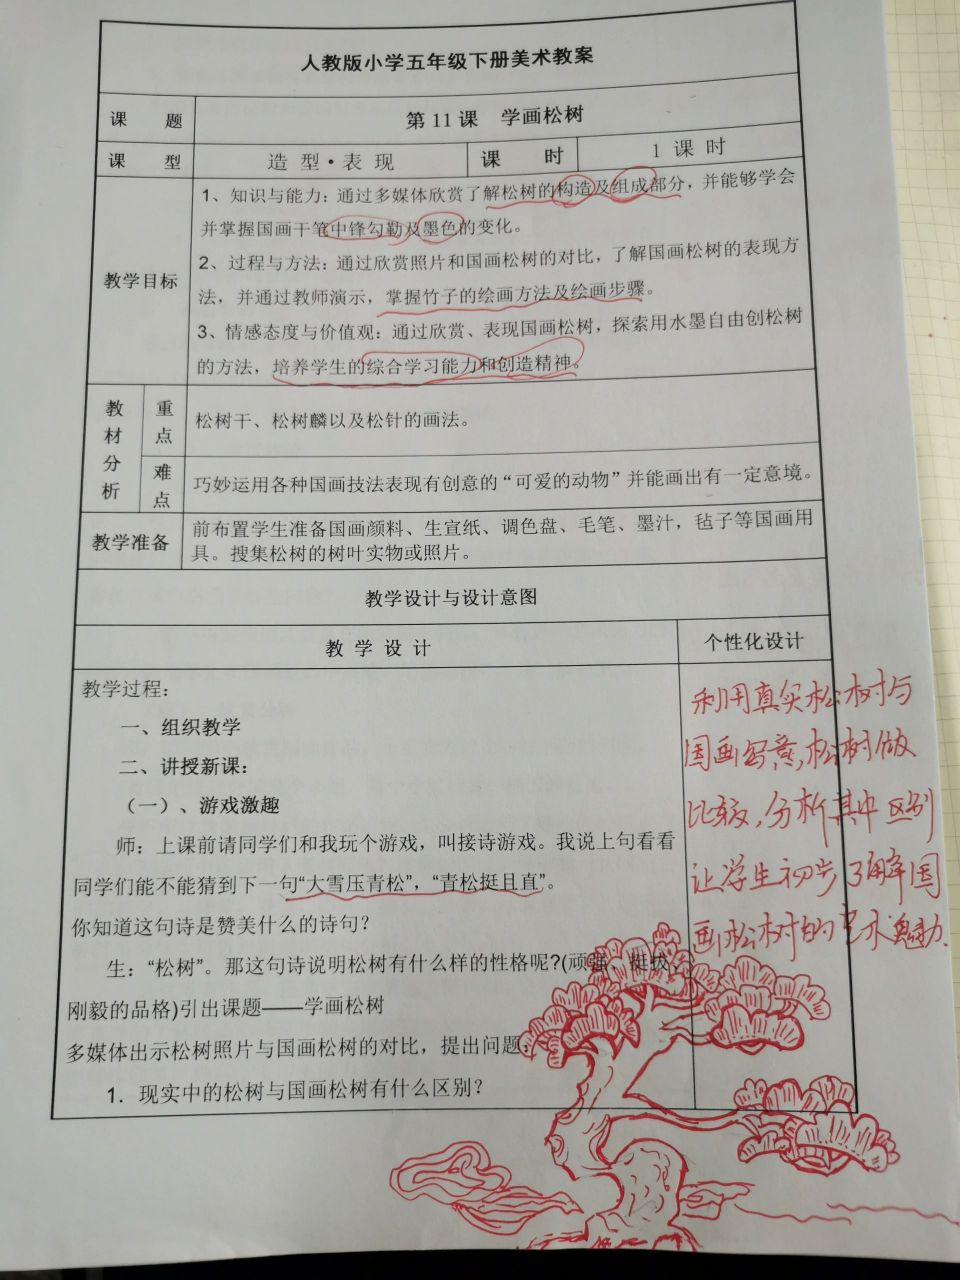 人教版小学五年级下册美术教案
课 题 第 11 课 学画松树
课 型 造 型·表 现 课 时 1 课 时
教学目标
1、知识与能力：通过多媒体欣赏了解松树的构造及组成部分，并能够学会
并掌握国画干笔中锋勾勒及墨色的变化。
2、过程与方法：通过欣赏照片和国画松树的对比，了解国画松树的表现方
法，并通过教师演示，掌握竹子的绘画方法及绘画步骤。
3、情感态度与价值观：通过欣赏、表现国画松树，探索用水墨自由创松树
的方法，培养学生的综合学习能力和创造精神。
教材分析
重点
松树干、松树麟以及松针的画法。
难点
巧妙运用各种国画技法表现有创意的“可爱的动物”并能画出有一定意境。
教学准备
前布置学生准备国画颜料、生宣纸、调色盘、毛笔、墨汁，毡子等国画用
具。搜集松树的树叶实物或照片。
教学设计与设计意图
教 学 设 计
个性化设计
教学过程：
一、组织教学
二、讲授新课：
（一）、游戏激趣
师：上课前请同学们和我玩个游戏，叫接诗游戏。我说上句看看
同学们能不能猜到下一句“大雪压青松”，“青松挺且直”。
你知道这句诗是赞美什么的诗句？
生：“松树”。那这句诗说明松树有什么样的性格呢?(顽强、挺拔、
刚毅的品格)引出课题——学画松树
多媒体出示松树照片与国画松树的对比，提出问题：
1．现实中的松树与国画松树有什么区别？
利用真实松树与
国画写意，松树做
比较，分析其中区别
让学生初步了解国
画松树的艺术魅力.